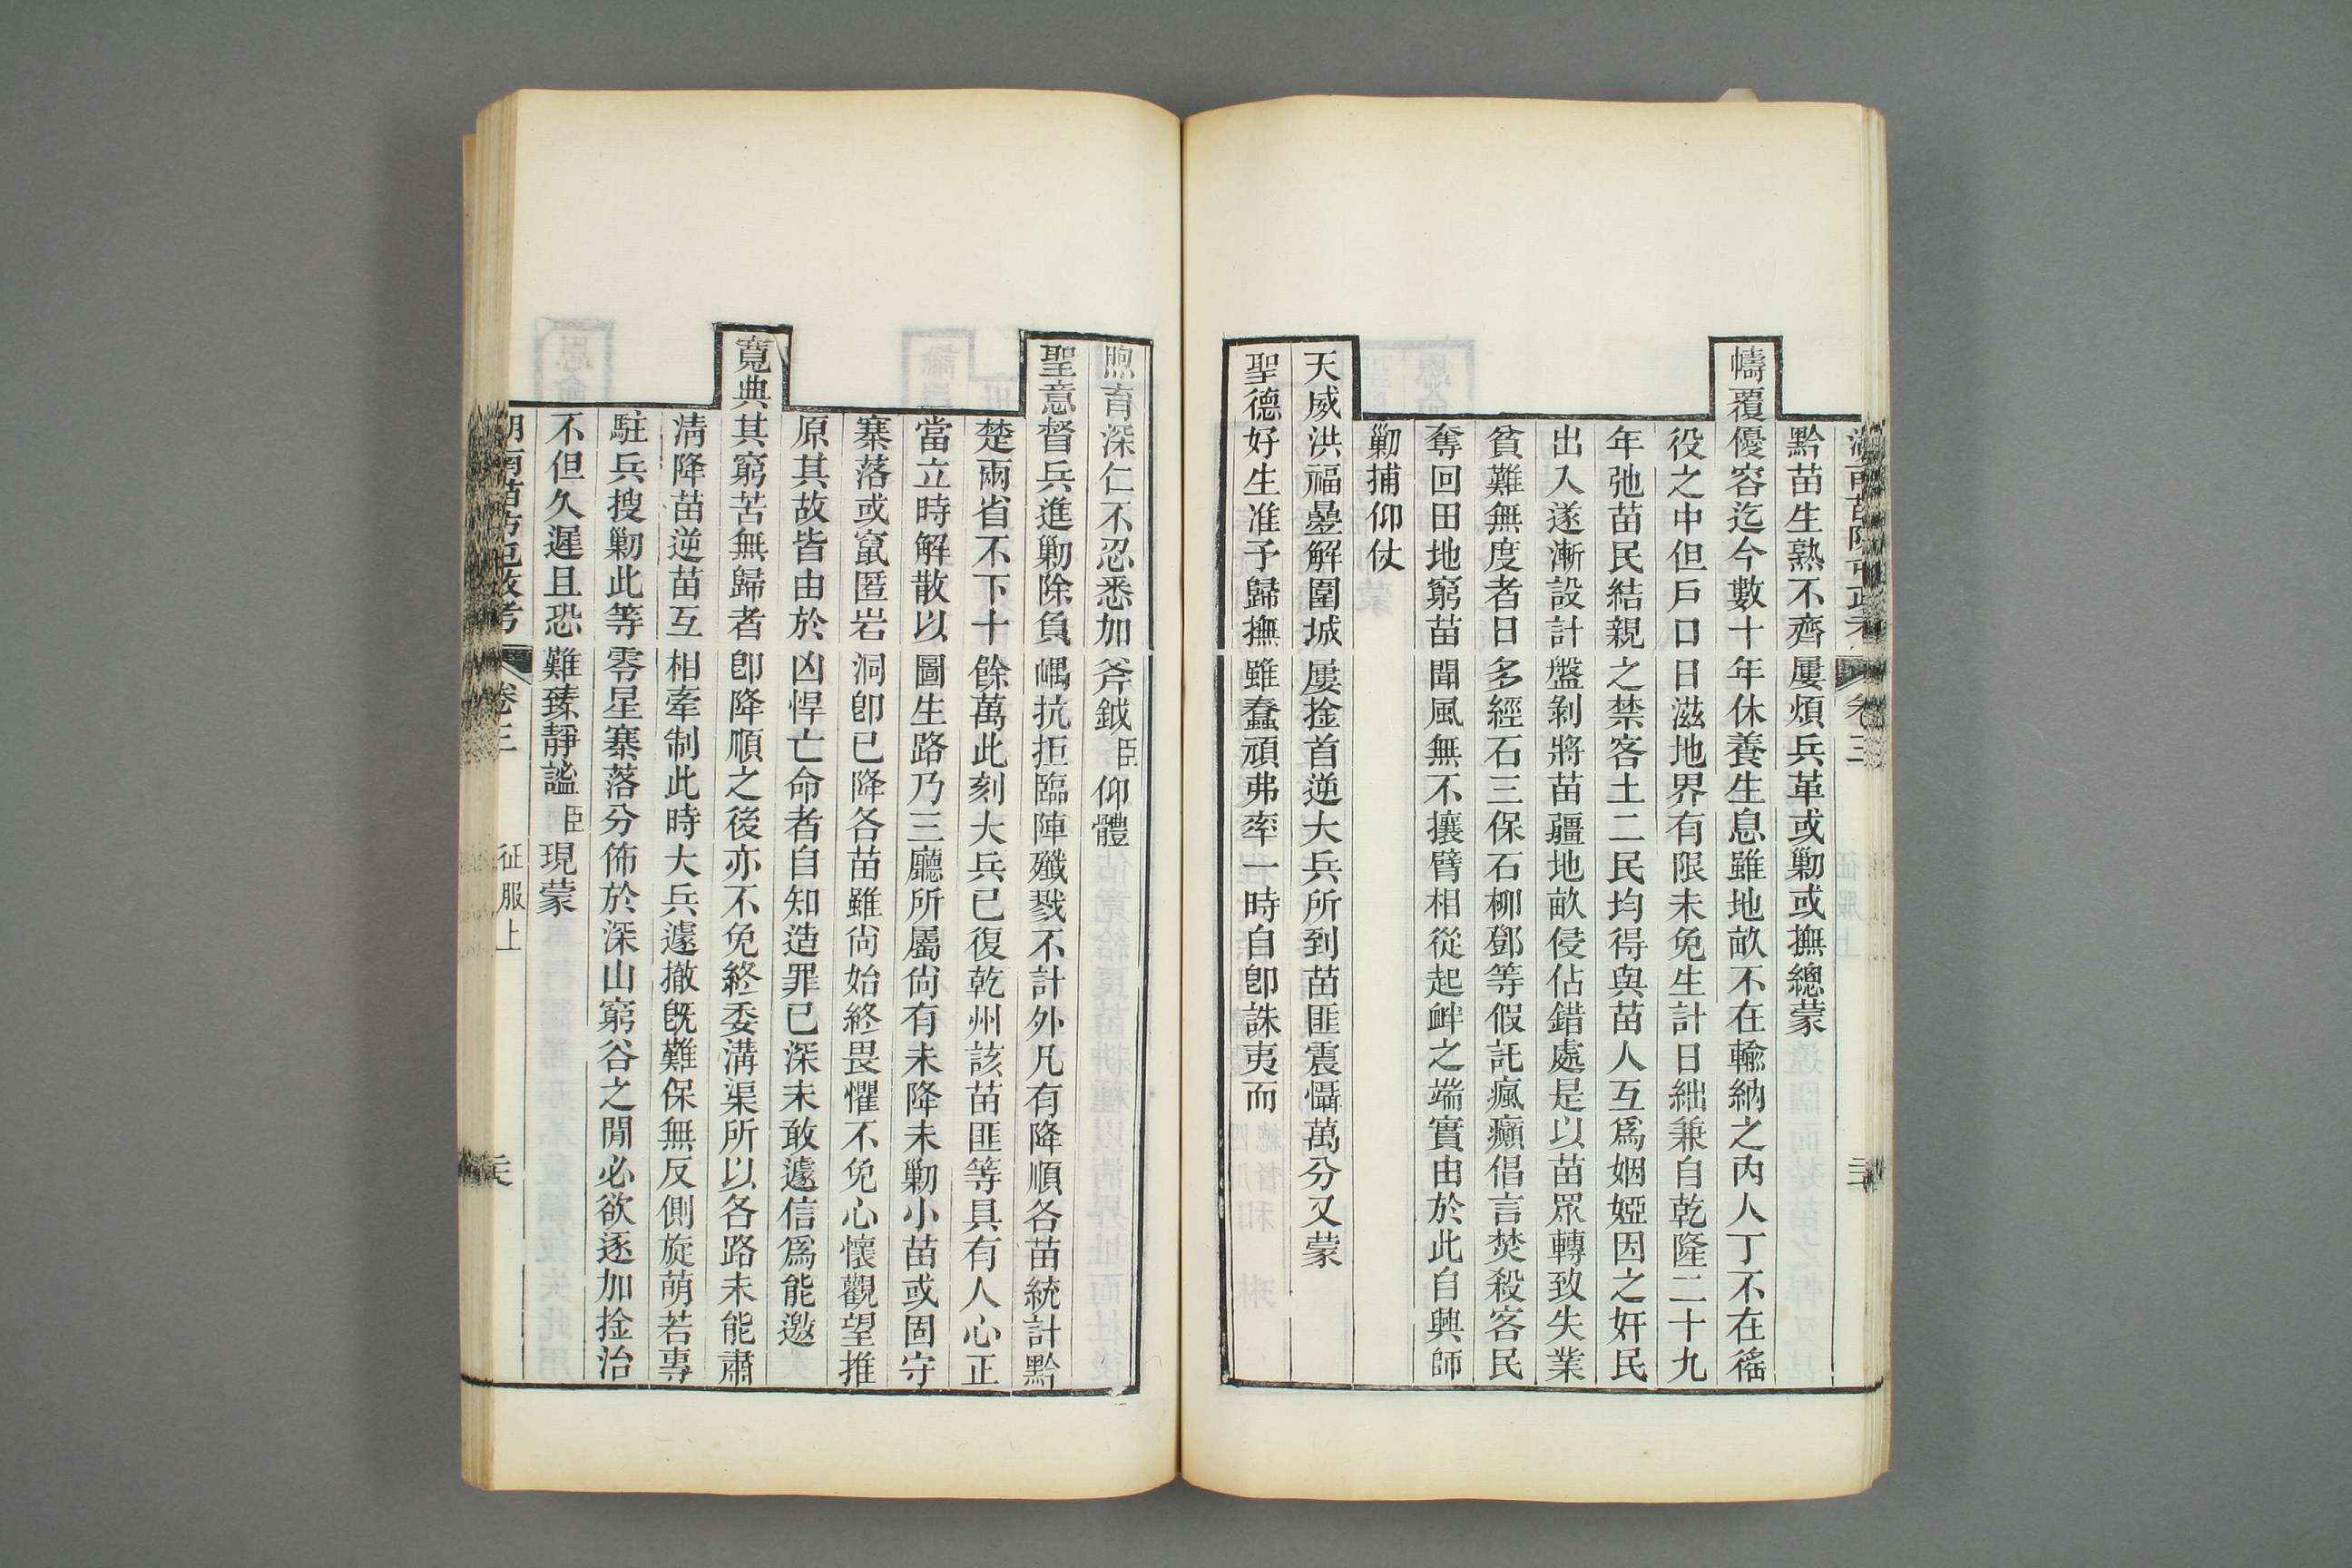 黔苗生熟不齊屢煩兵革或勦或撫總蒙
幬覆優容迄今數十年休養生息雖地畝不在輸納之內人丁不在徭
役之中但戶口日滋地界有限未免生計日絀兼自乾隆二十九
年弛苗民結親之禁客土二民均得與苗人互爲姻婭因之奸民
出入遂漸設計盤剝將苗疆地畝侵佔錯處是以苗眾轉致失業
貧難無度者日多經石三保石柳鄧等假託瘋癲倡言焚殺客民
奪回田地窮苗聞風無不攘臂相從起衅之端實由於此自興師
勦捕仰仗
天威洪福疊解圍城屢擒首逆大兵所到苗匪震懾萬分又蒙
聖德好生准予歸撫雖蠢頑弗率一時自卽誅夷而
煦育深仁不忍悉加斧鉞臣仰體
聖意督兵進勦除負嵎抗拒臨陣殲戮不計外凡有降順各苗統計黔
楚兩省不下十餘萬此刻大兵已復乾州該苗匪等具有人心正
當立時解散以圖生路乃三廳所屬尙有未降未勦小苗或固守
寨落或竄匿岩洞卽已降各苗雖尙始終畏懼不免心懷觀望推
原其故皆由於凶悍亡命者自知造罪已深未敢遽信爲能邀
寬典其窮苦無歸者卽降順之後亦不免終委溝渠所以各路未能肅
淸降苗逆苗互相牽制此時大兵遽撤旣難保無反側旋萌若專
駐兵搜勦此等零星寨落分佈於深山窮谷之閒必欲逐加擒治
不但久遲且恐難臻靜謐臣現蒙
湖南苗防屯政考 卷三 征服上